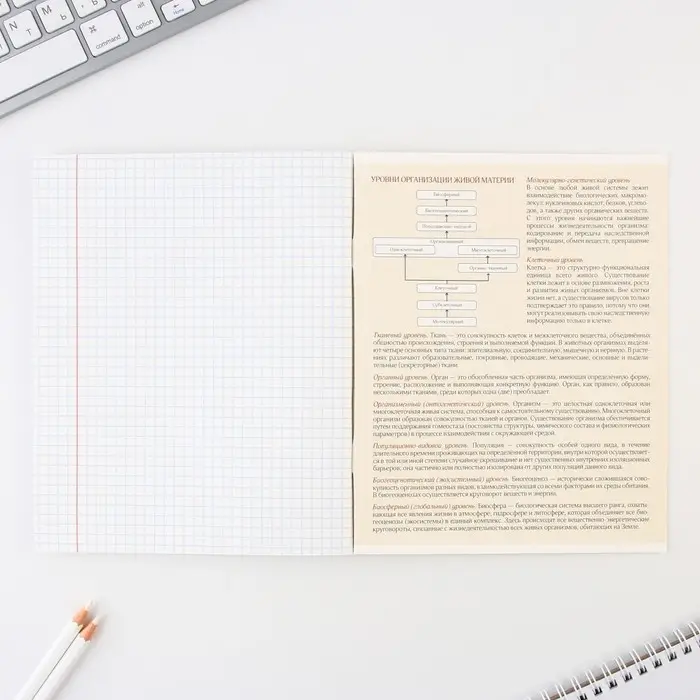 N
T
M
Ь
⌘
command
alt
option
УРОВНИ ОРГАНИЗАЦИИ ЖИВОЙ МАТЕРИИ
Биосферный
Биогеоценотический
Популяционно-видовой
Организменный
Одноклеточный
Многоклеточный
Органно-тканевый
Клеточный
Субклеточный
Молекулярный
Молекулярно-генетический уровень
В основе любой живой системы лежит
взаимодействие биологических макромо-
лекул: нуклеиновых кислот, белков, углево-
дов, а также других органических веществ.
С этого уровня начинаются важнейшие
процессы жизнедеятельности организма:
кодирование и передача наследственной
информации, обмен веществ, превращение
энергии.
Клеточный уровень
Клетка — это структурно-функциональная
единица всего живого. Существование
клетки лежит в основе размножения, роста
и развития живых организмов. Вне клетки
жизни нет, а существование вирусов только
подтверждает это правило, потому что они
могут реализовывать свою наследственную
информацию только в клетке.
Тканевый уровень. Ткань — это совокупность клеток и межклеточного вещества, объединённых
общностью происхождения, строения и выполняемой функции. В животных организмах выделя-
ют четыре основных типа ткани: эпителиальную, соединительную, мышечную и нервную. В расте-
ниях различают образовательные, покровные, проводящие, механические, основные и выдели-
тельные (секреторные) ткани.
Органный уровень. Орган — это обособленная часть организма, имеющая определённую форму,
строение, расположение и выполняющая конкретную функцию. Орган, как правило, образован
несколькими тканями, среди которых одна (две) преобладает.
Организменный (онтогенетический) уровень. Организм — это целостная одноклеточная или
многоклеточная живая система, способная к самостоятельному существованию. Многоклеточный
организм образован совокупностью тканей и органов. Существование организма обеспечивается
путем поддержания гомеостаза (постоянства структуры, химического состава и физиологических
параметров) в процессе взаимодействия с окружающей средой.
Популяционно-видовой уровень. Популяция — совокупность особей одного вида, в течение
длительного времени проживающих на определенной территории, внутри которой осуществляет-
ся в той или иной степени случайное скрещивание и нет существенных внутренних изоляционных
барьеров; она частично или полностью изолирована от других популяций данного вида.
Биогеоценотический (экосистемный) уровень. Биогеоценоз — исторически сложившаяся сово-
купность организмов разных видов, взаимодействующая со всеми факторами их среды обитания.
В биогеоценозах осуществляется круговорот веществ и энергии.
Биосферный (глобальный) уровень. Биосфера — биологическая система высшего ранга, охваты-
вающая все явления жизни в атмосфере, гидросфере и литосфере, которая объединяет все био-
геоценозы (экосистемы) в единый комплекс. Здесь происходят все вещественно-энергетические
круговороты, связанные с жизнедеятельностью всех живых организмов, обитающих на Земле.